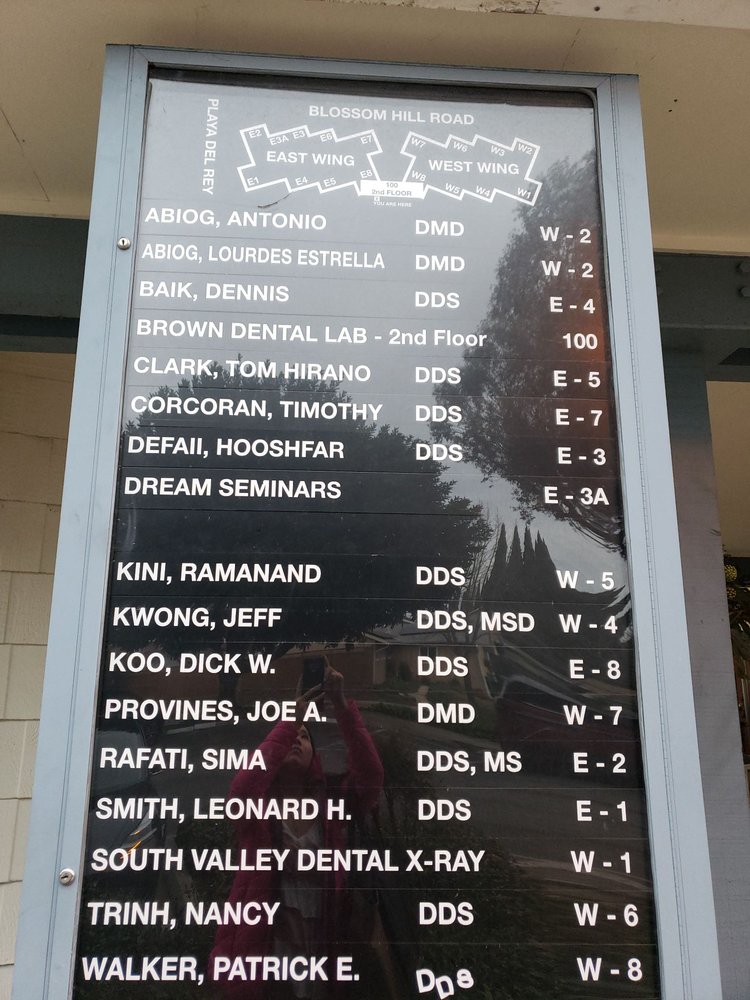 BLOSSOM HILL ROAD
PLAYA DEL REY
E2 E3A E3 E6 E7 W7 W6 W3 W2
EAST WING WEST WING
E1 E4 E5 E8 W8 W5 W4 W1
100
2nd FLOOR
YOU ARE HERE
ABIOG, ANTONIO DMD W - 2
ABIOG, LOURDES ESTRELLA DMD W - 2
BAIK, DENNIS DDS E - 4
BROWN DENTAL LAB - 2nd Floor 100
CLARK, TOM HIRANO DDS E - 5
CORCORAN, TIMOTHY DDS E - 7
DEFAII, HOOSHFAR DDS E - 3
DREAM SEMINARS E - 3A
KINI, RAMANAND DDS W - 5
KWONG, JEFF DDS, MSD W - 4
KOO, DICK W. DDS E - 8
PROVINES, JOE A. DMD W - 7
RAFATI, SIMA DDS, MS E - 2
SMITH, LEONARD H. DDS E - 1
SOUTH VALLEY DENTAL X-RAY W - 1
TRINH, NANCY DDS W - 6
WALKER, PATRICK E. DDS W - 8